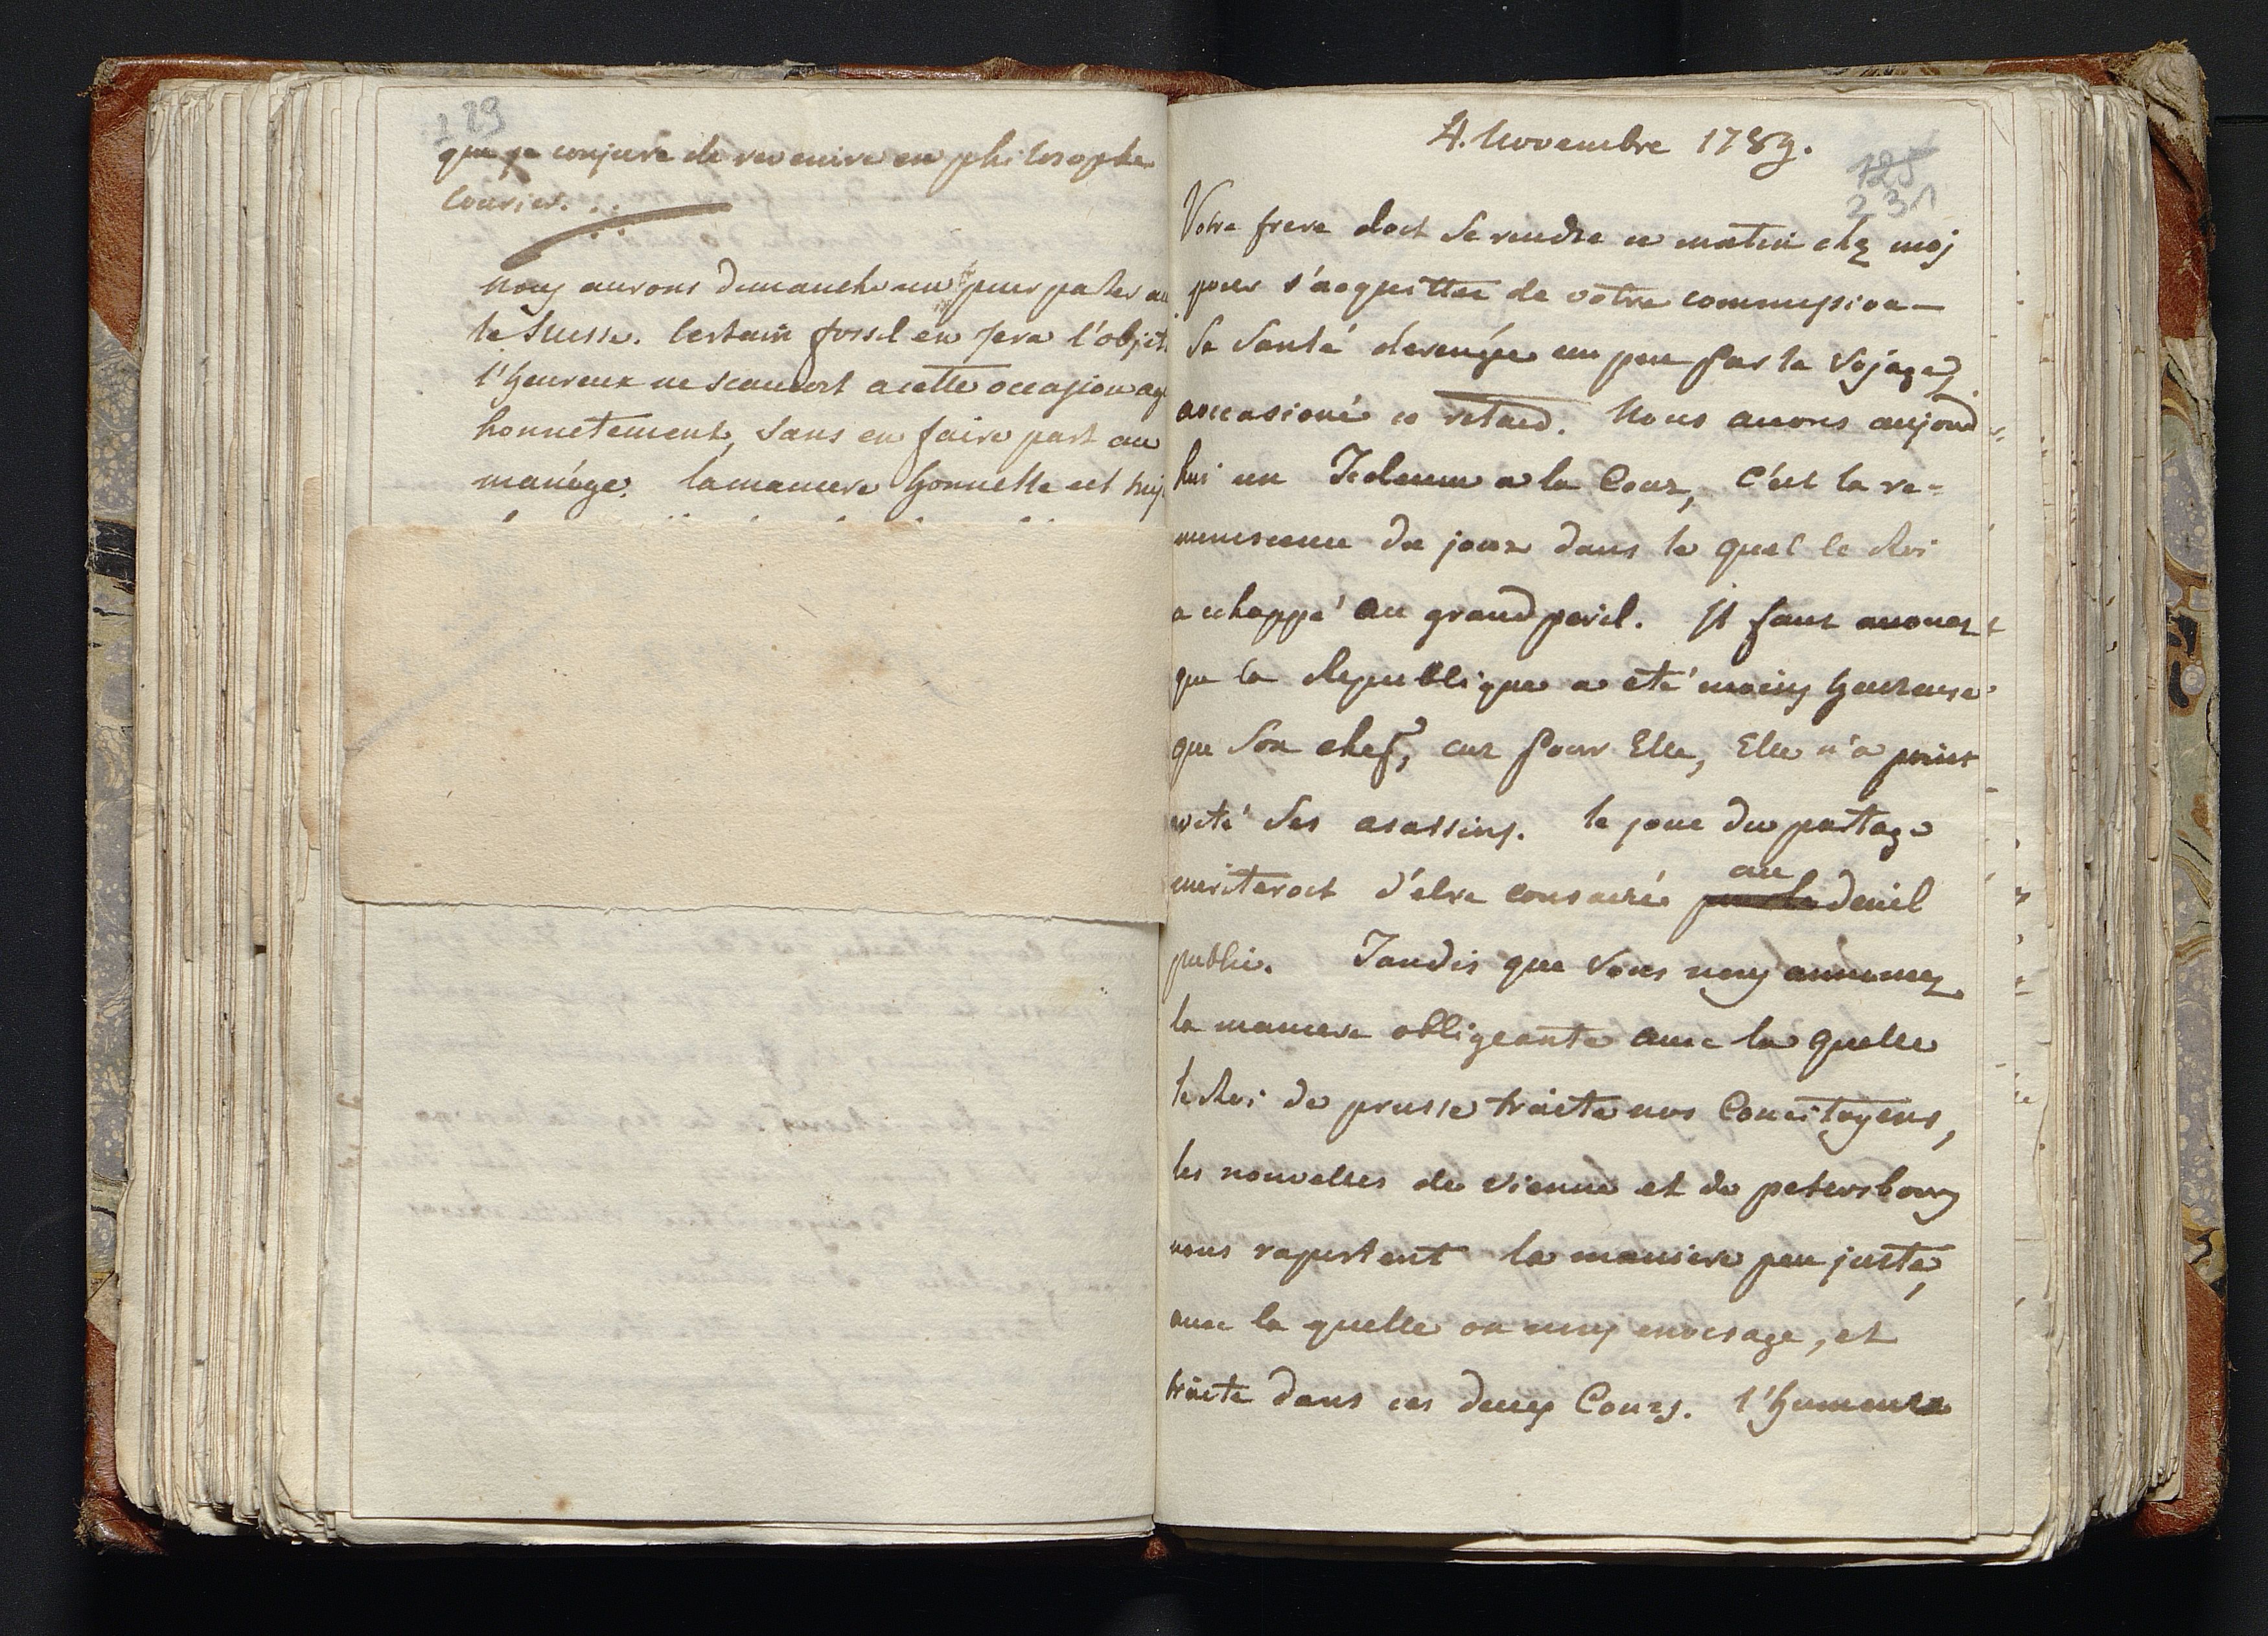 129
que je conjure de revenire en philosophe
Courier. . .
nous aurons dimanche un pour parler au
le Suisse. Certain fossil en sera l'objet
l'heureux ne scauroit a cette occasion ag
honnetement, sans en faire part au
manége. la maniere honnette est
4. Novembre 1789.
125
231
Votre frere doit se rendre ce matin chez moj
pour s'acquitter de votre commission –
Sa Santé derengée un peu par le Vojage,
a occasioné ce retard. Nous avons aujourd
hui un Tedeum a la Cour, C'est la re=
miniscence du jour dans le quel le Roi
a echappé au grand peril. Il faut avouer
que la Republique a eté moins heureuse
que son chef, car pour Elle, Elle n'a point
evité ses asassins. le jour du partage
meriteroit d'etre consacré pour le au deuil
public. Tandis que Vous nous annoncez
la maniere obligeante avec la quelle
le Roi de prusse traite nos Concitoyens,
les nouvelles de Vienne et de petersbourg
nous raportent la maniere peu juste,
avec la quelle on nous envisage, et
traite dans ces deux Cours. l'humeur